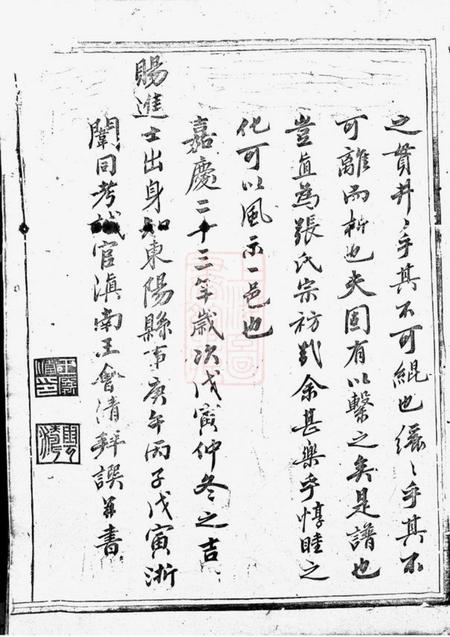 之貫井〻乎其不可緄也繩〻乎其不
可離而析也夫固有以繫之矣是譜也
豈直為張氏宗祊計余甚樂乎惇睦之
化可以風示一邑也
嘉慶二十三年歲次戊寅仲冬之吉
賜進士出身知東陽縣事庚午丙子戊寅浙
闈同考試官滇南王會清拜譔并書